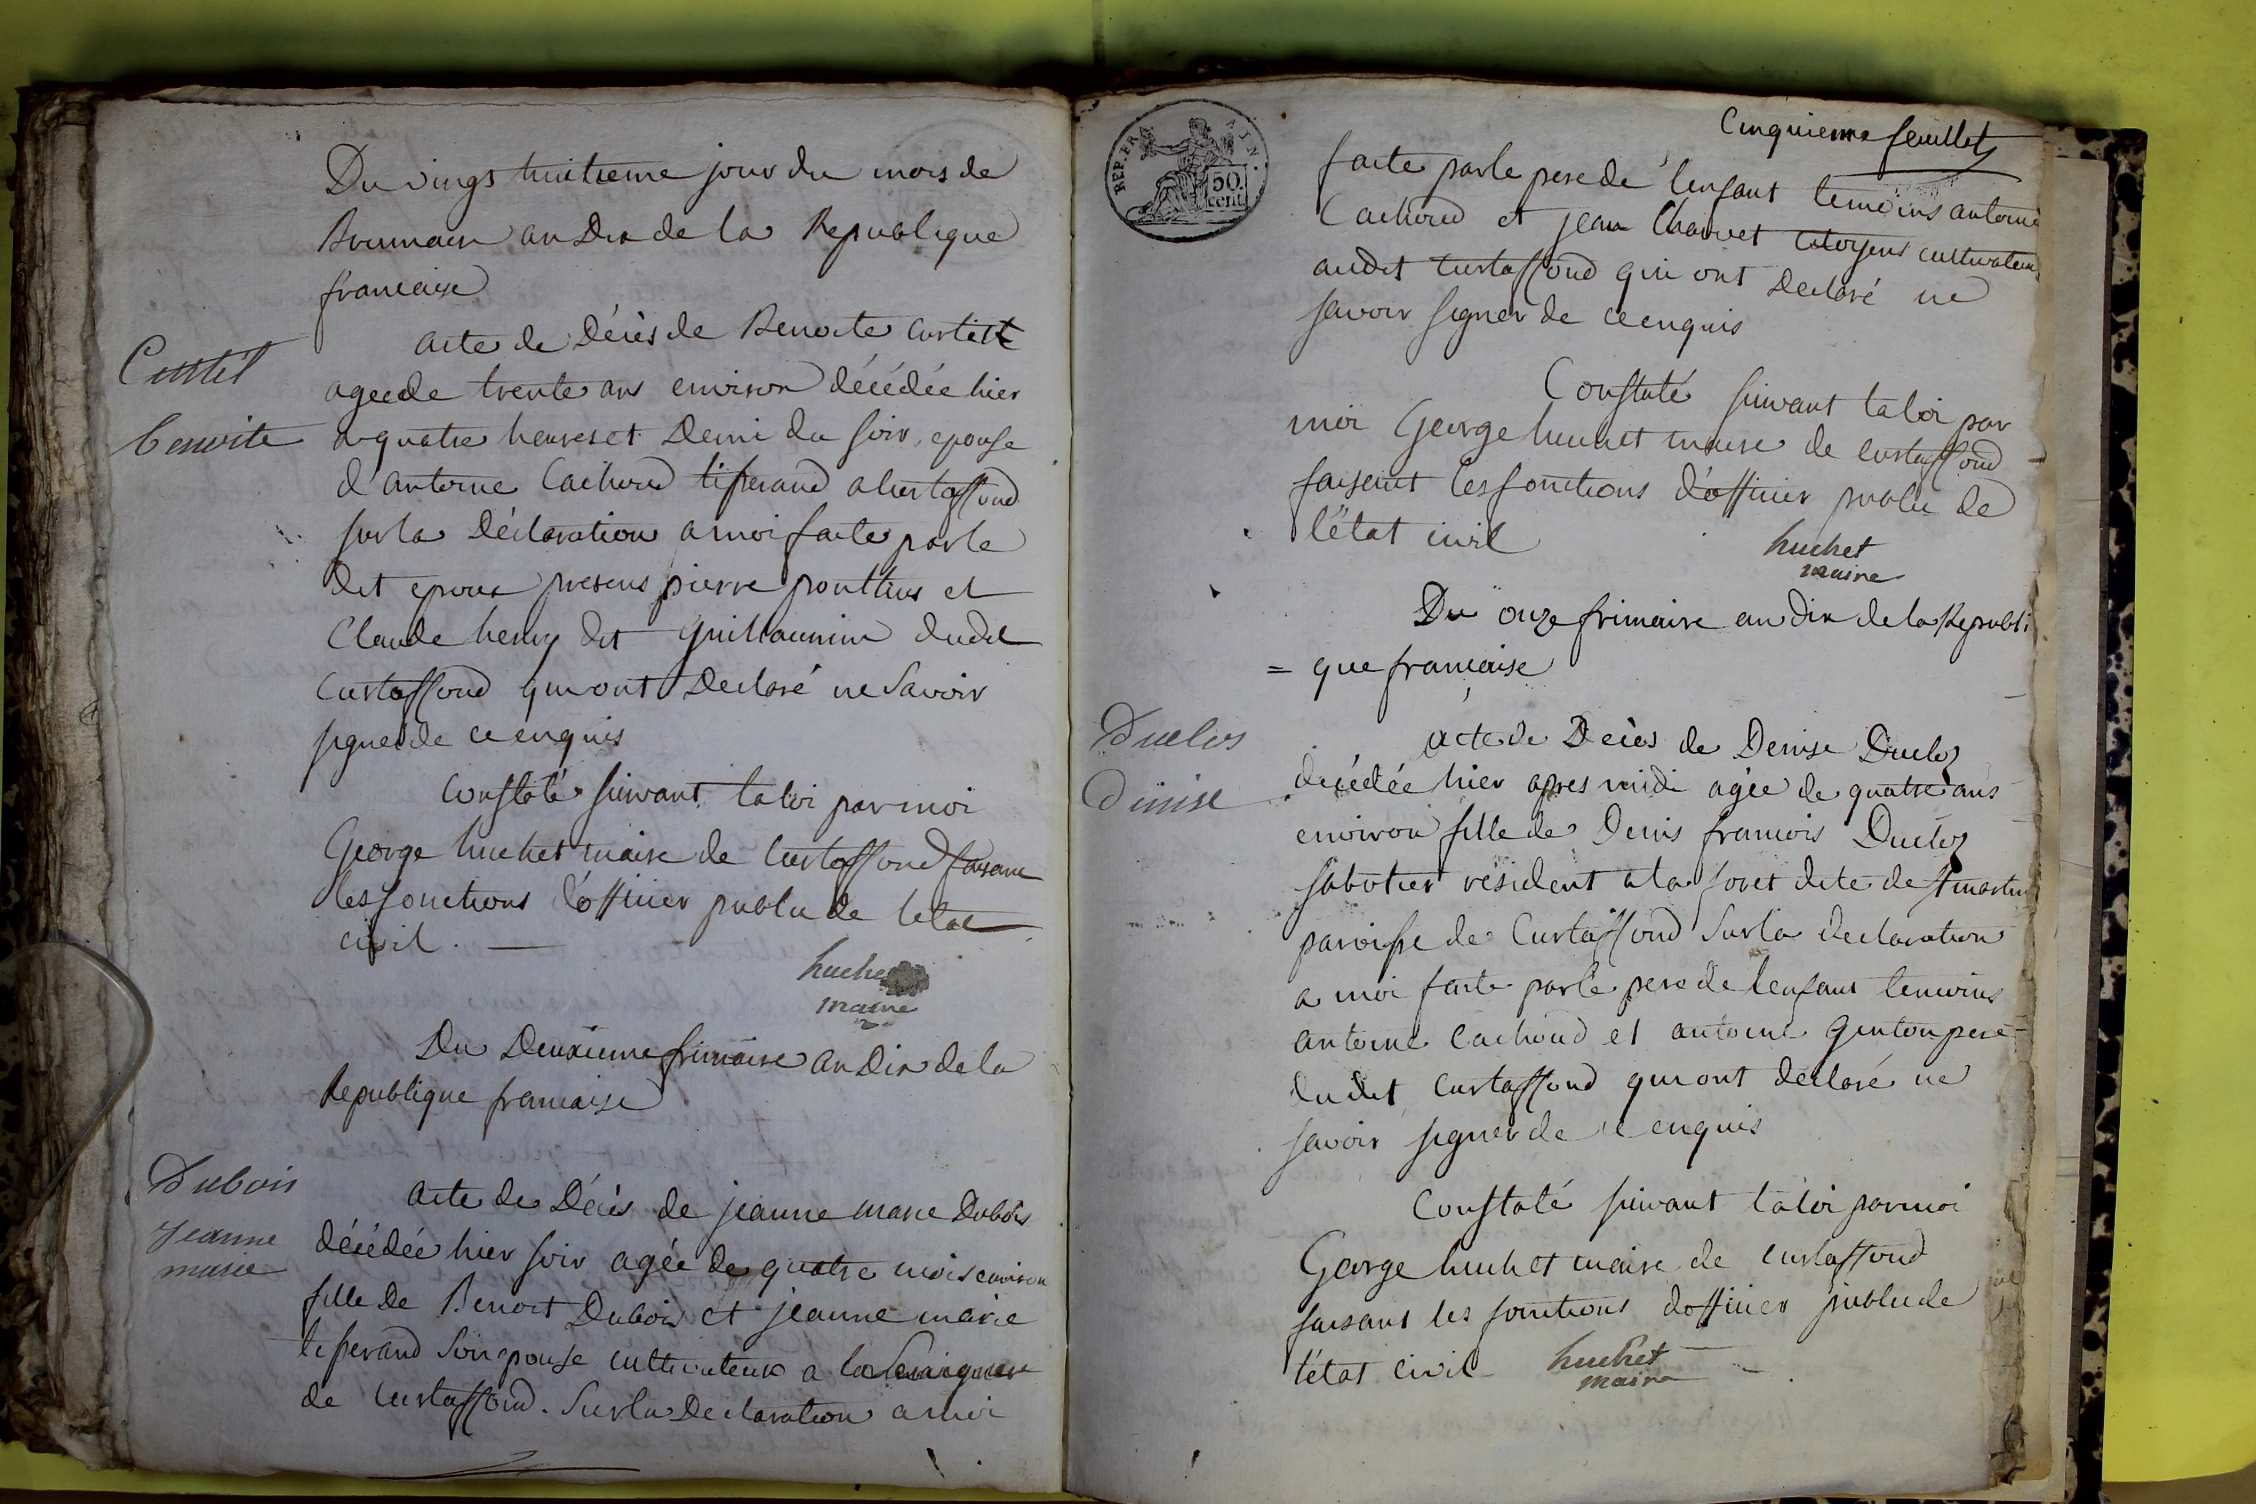 Du vingt huitieme jour du mois de
Brumaire an Dix de la Republique
francaise
Curtil
benoite
acte de Décès de Benoite Curtil
agee de trente ans environ décédée hier
a quatre heures et Demi du soir, epouse
d'antoine Cachoud tisserand a Curtaffond
sur la Déclaration a moi faite par le
dit epoux presens pierre ponthus et
Claude henry dit Guillaumin dudit
Curtaffond qui ont Declaré ne Savoir
signer de ce enquis
Constaté suivant la loi par moi
George huchet maire de Curtaffond faisant
les fonctions d'officier public de l'etat
civil.
huchet
maire
Du Deuxieme frimaire an Dix de la
Republique francaise
Dubois
Jeanne
marie
acte de Décès de jeanne marie Dubois
décédée hier soir agée de quatre mois environ
fille de Benoit Dubois et jeanne marie
tisserand son epouse cultivateur a la
de Curtaffond. Sur la Declaration a moi
Cinquieme feuillet
REP. FRA. AIN.
50.
cent.
faite par le pere de l'enfant temoins antoine
Cachoud et jean Chanvet citoyens cultivateurs
audit Curtaffond qui ont Declaré ne
savoir signer de ce enquis
Constaté suivant la loi par
moi George huchet maire de Curtaffond
faisant les fonctions d'officier public de
l'état civil
huchet
maire
Du onze frimaire an dix de la Republi
= que francaise
Duclos
Dinise
acte de Décès de Denise Ducloz
décédée hier apres midi agée de quatre ans
environ fille de Denis francois Ducloz
sabotier résident a la foret dite de st martin
paroisse de Curtaffond Sur la Declaration
a moi faite par le pere de l'enfant temoins
antoine Cachoud et antoine Genton pere
dudit Curtaffond qui ont déclaré ne
savoir signer de ce enquis
Constaté suivant la loi par moi
George huchet maire de Curtaffond
faisant les fonctions d'officier public de
l'état civil
huchet
maire